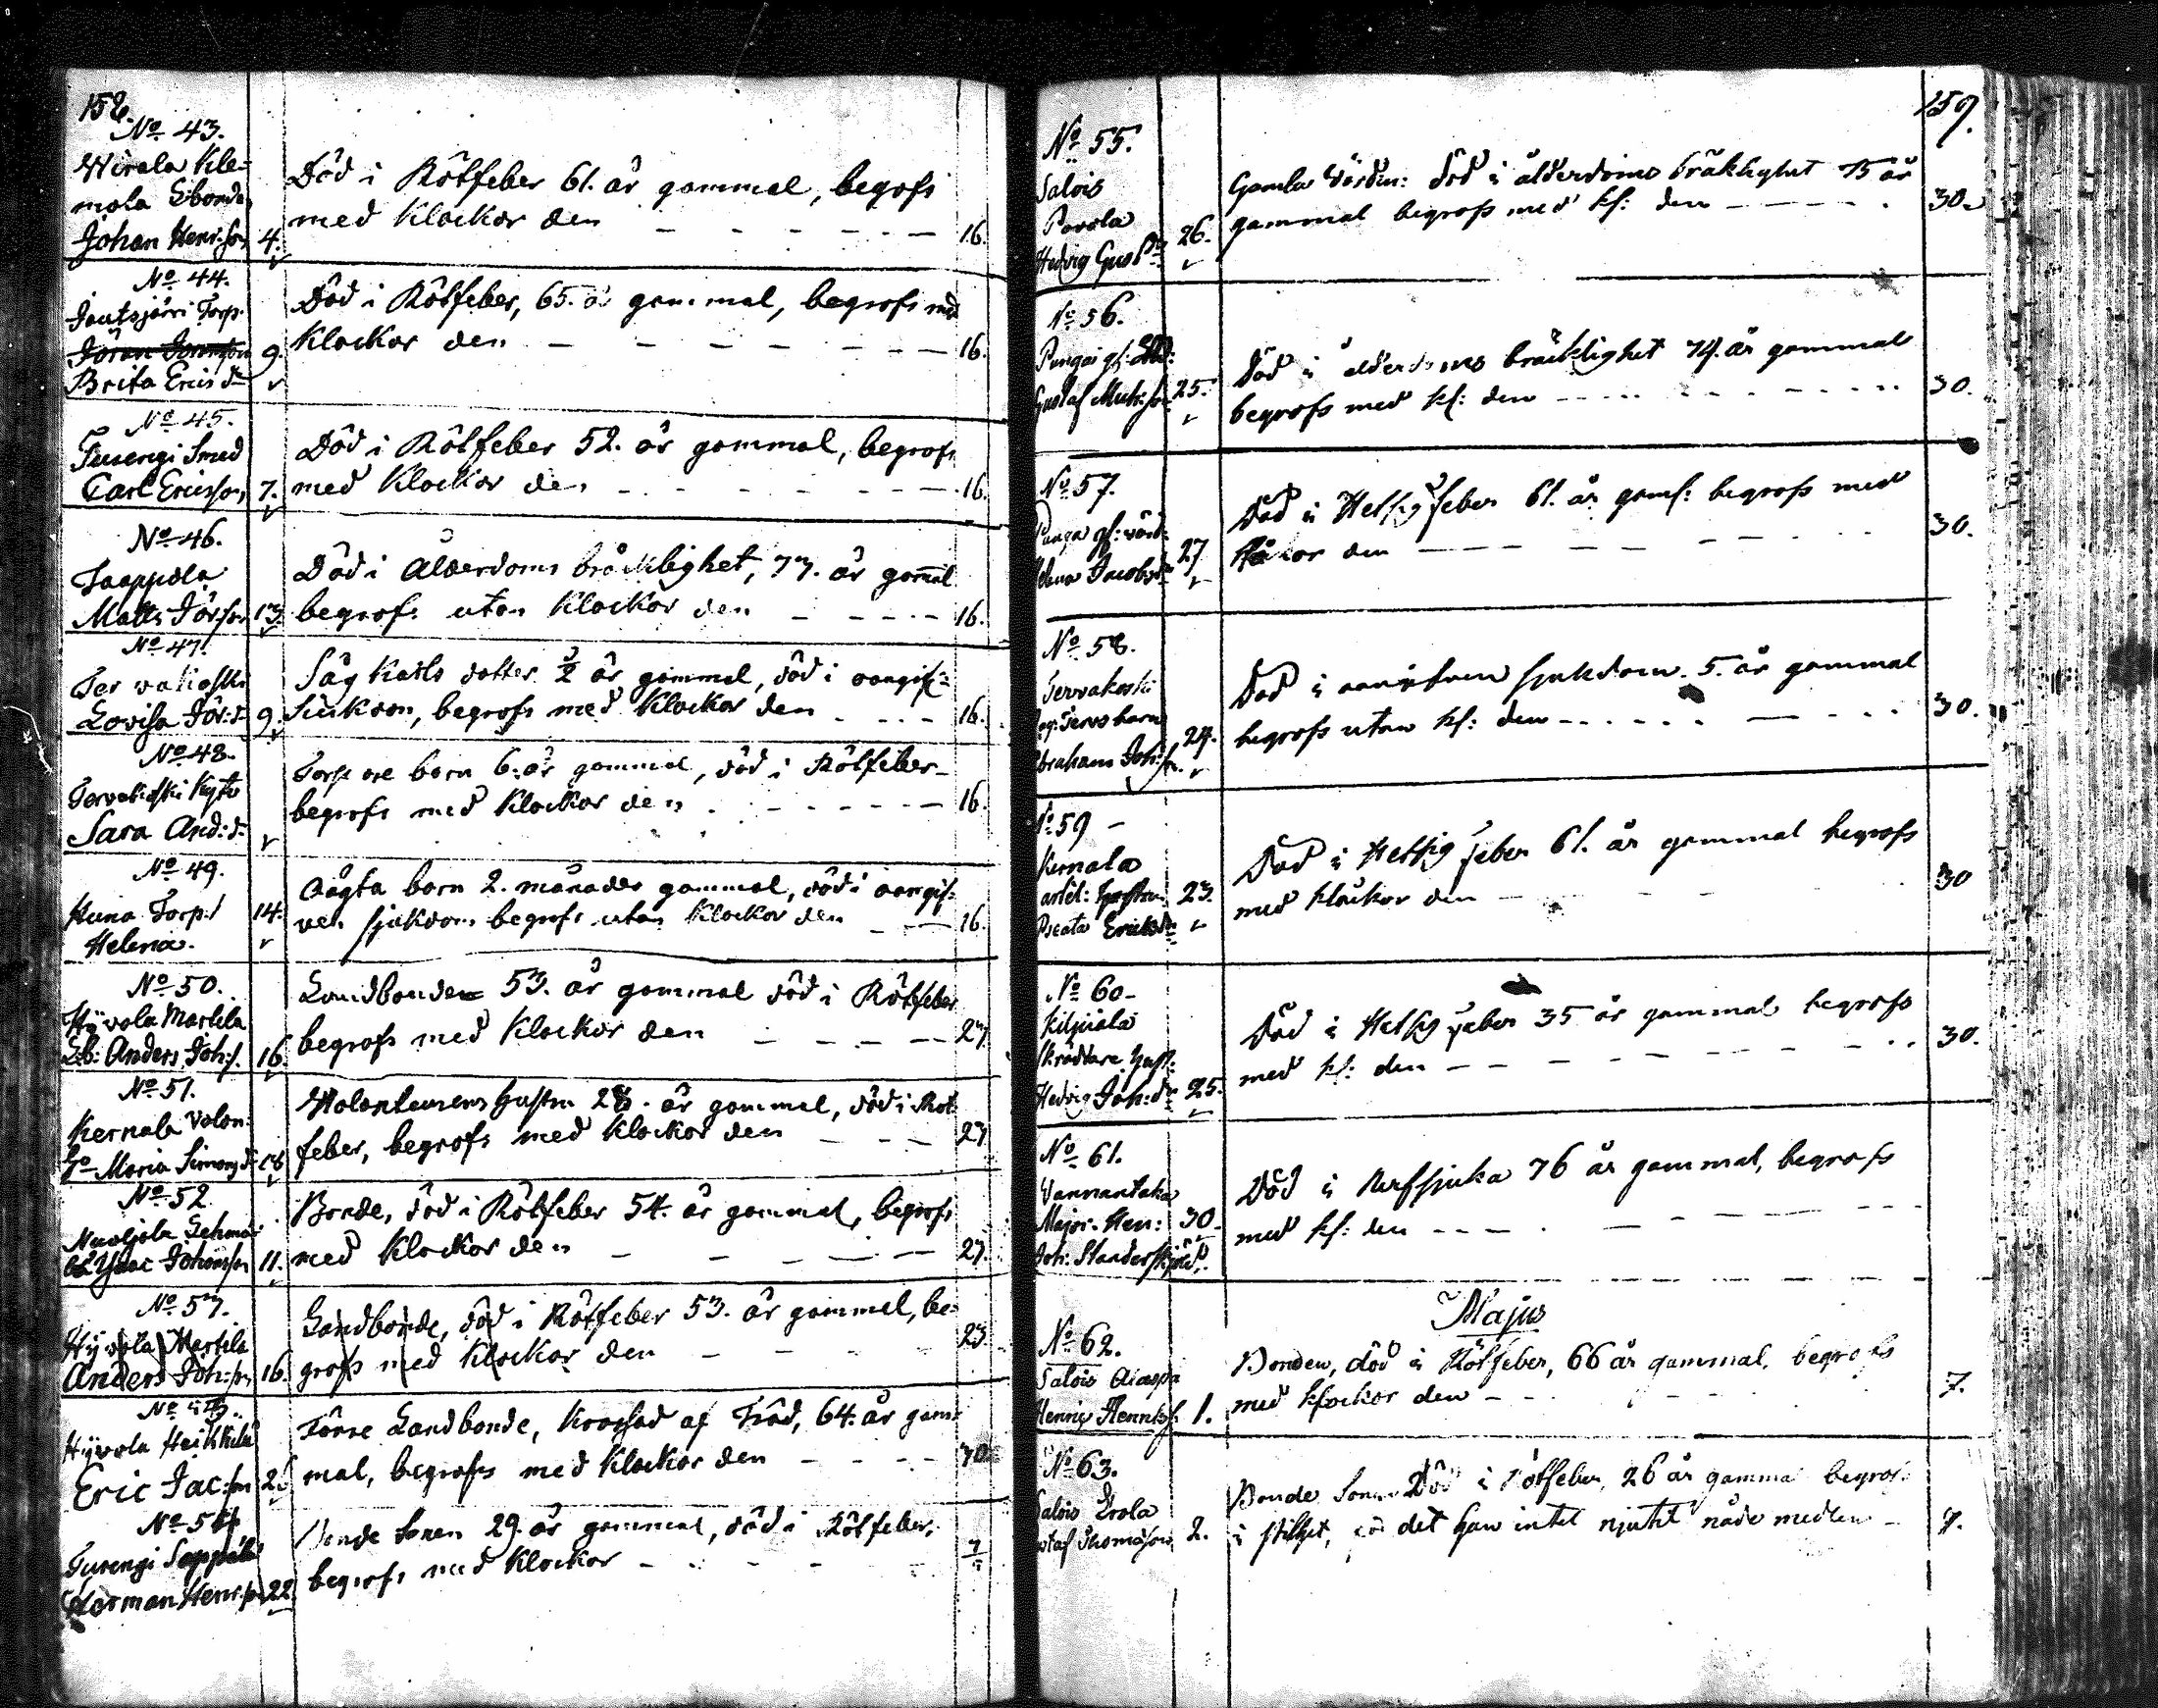 158.
No 43.
Wirala Kle=
mola Lbonde
Johan Henr:son 4.
Död i Rötfeber 61. år gammal, begrofs
med Klockor den 16.
No 44.
Jautsjärvi Torp.
Brita Erics dr 9.
Död i Rötfeber, 65. år gammal, begrofs med
Klockor den 16.
No 45.
Turengi Smed
Carl Ericsson 7.
Död i Rötfeber 52. år gammal, begrofs
med Klockor den 16.
No 46.
Taappola
Matts Jör:son 13.
Död i Ålderdoms bräcklighet, 77. år gamal
begrofs utan Klockor den 16.
No 47.
Tervakoski
Lovisa Jör:dr 9.
Såg Karls dotter 3/2 år gammal, död i oangif=
Siukdom, begrofs med Klockor den 16.
No 48.
Tervakoski Kyto
Sara And:dr
Torpare barn 6. år gammal, död i Rötfeber
begrofs med Klockor den 16.
No 49.
Huna Torp:
Helena. 14.
Oägta barn 2. månader gammal, död i oangif=
ven sjukdom begrofs utan Klockor den 16.
No 50.
Hyvola Martila
Lb: Anders Joh:s. 16.
Landbonden 53. år gammal död i Rötfeber
begrofs med Klockor den 27.
No 51.
Kernala Volon:
Ho Maria Simons dr 18
Wolonteurens Hustru 28. år gammal, död i Röt
feber, begrofs med Klockor den 27.
No 52.
Isaac Johansson 11.
Bonde, död i Rötfeber 54. år gammal, begrofs
med Klockor den 27.
No 53.
Hyvola Martila
Anders Joh:son 16.
Landbonde, död i Rötfeber 53. år gammal, be=
grofs med Klockor den 23.
Hyvola Heikkilä
Eric Jac:son 25
Förre Landbonde, Krossad af Träd, 64. år gam=
mal, begrofs med Klockor den 30.
No 54
Turengi Seppälä
Herman Henr:son 22
Bonde Sonen 29. år gammal, död i Rötfeber,
begrofs med Klockor 7/5
159.
No 55.
Salois
Parola
Hedvig Gus dr 26.
Gamla Värdin: Död i ålderdoms bräklighet 75 år
gammal begrofs med kl: den 30.
No 56.
Gustaf Mich:son 25.
Död i ålderdoms bräcklighet 74. år gammal
begrofs med kl: den 30.
No 57.
Helena Jacobs dr 27
Död i Hetsig feber 61. år gaml: begrofs med
Klockor den 30.
No 58.
Tervakoski
Abraham Joh:son 24.
Död i okänd sjukdom. 5. år gammal
begrofs utan kl: den 30.
No 59
Kernala
Beata Eriks dr 23.
Död i Hetsig feber 61. år gammal begrofs
med Klockor den 30
No 60
Kilpiala
Skräddare Hust:
Hedvig Joh:dr 25.
Död i Hetsig feber 35 år gammal begrofs
med kl: den 30.
No 61.
Wanantaka
Major. Herr: 30.
Joh: Standerskjöld.
Död i Rufsjuka 76 år gammal, begrofs
med kl: den
Majus
No 62.
Salois
Henric Henrics: 1.
Bonden, död i Rötfeber, 66 år gammal, begrofs
med klockor den 7.
No 63.
Salois Erola
Gustaf Thomasson 2.
Bonde Sonen Död i Rötfeber, 26 år gammal begrof:
i stillhet, det han intet njutit nådemedlen 7.